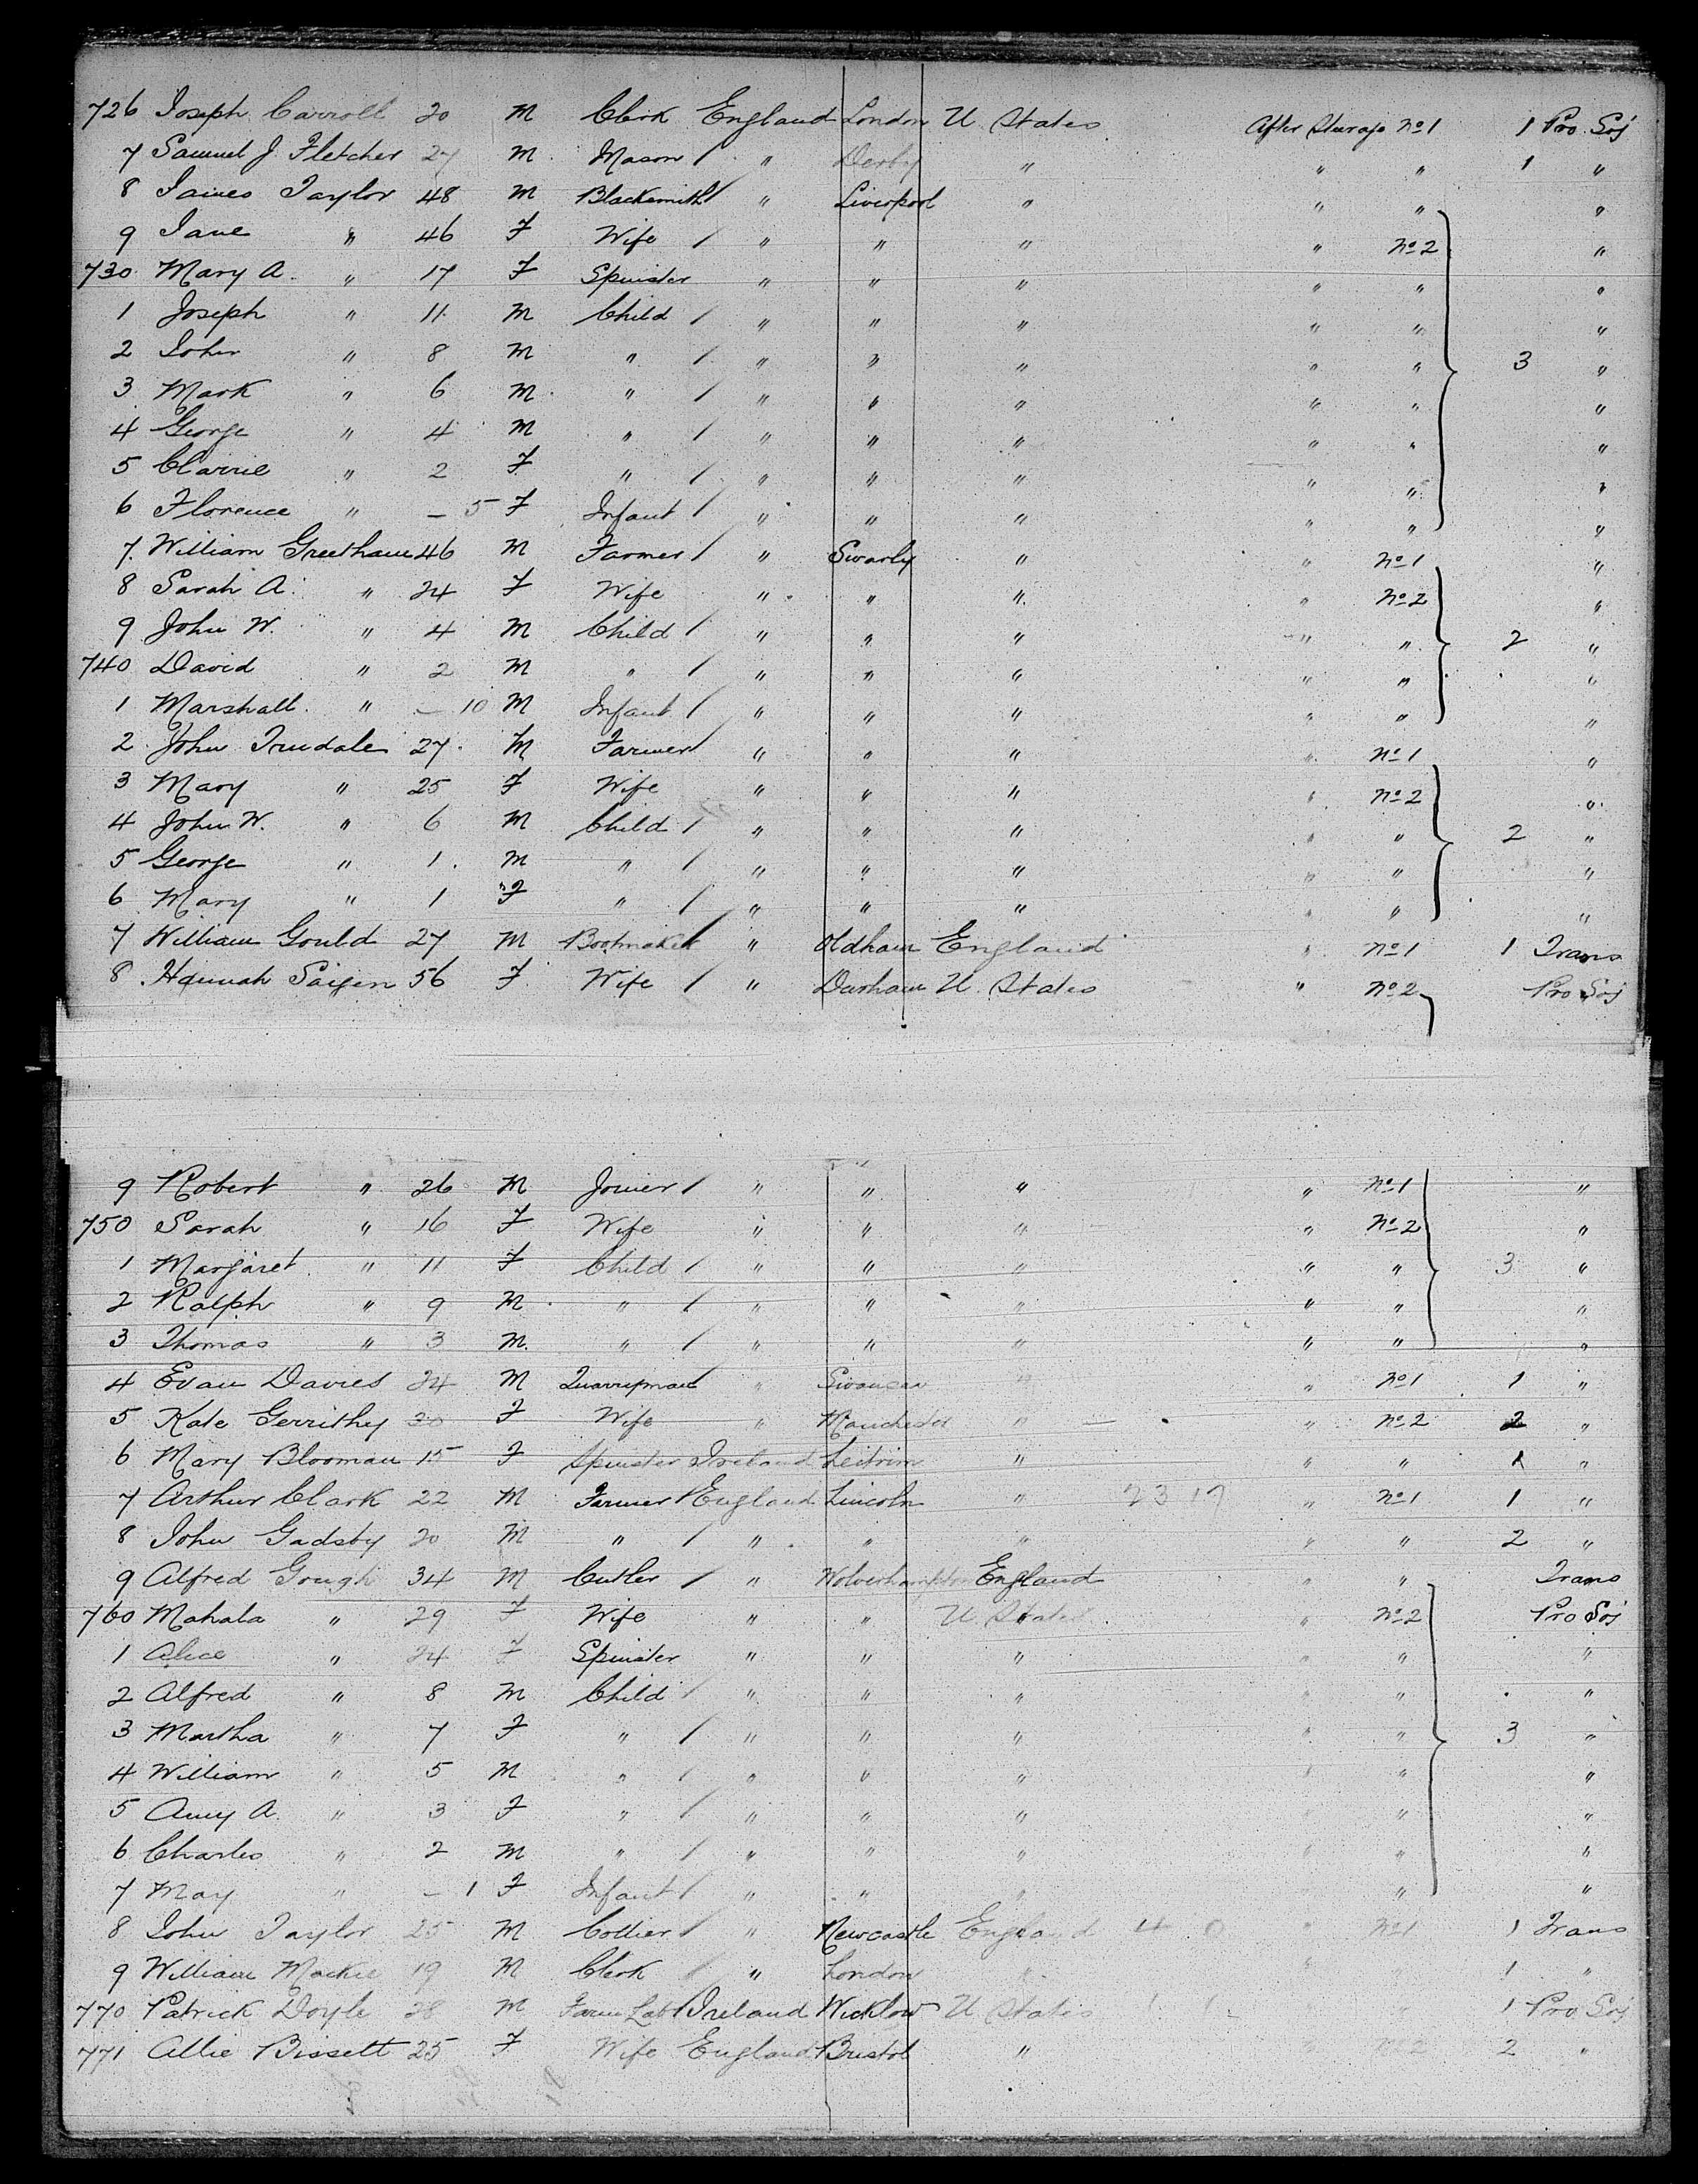 726 Joseph Carroll 20 M Clerk England London U. States After Steerage No 1 1 Pro. Soj
7 Samuel J. Fletcher 27 M. Mason / " Derby " " " 1 "
8 James Taylor 48 M Blacksmith / " Liverpool " " " "
9 Jane " 46 F Wife / " " " " No 2 "
730 Mary A. " 17 F Spinster " " " " " "
1 Joseph " 11 M Child / " " " " " "
2 John " 8 M " / " " " " " 3 "
3 Mark " 6 M. " / " " " " " "
4 George " 4 M " / " " " " " "
5 Clarrie " 2 F " / " " " " " "
6 Florence " – 5 F Infant / " " " " " "
7. William Greetham 46 M Farmer / " Swarby " " No 1 "
8 Sarah A. " 24 F Wife " " " " No 2 "
9 John W. " 4 M Child / " " " " " 2 "
740 David " 2 M " / " " " " " "
1 Marshall " – 10 M Infant / " " " " " "
2 John 27 M Farmer / " " " " No 1 "
3 Mary " 25 F Wife " " " " No 2 "
4 John W. " 6 M Child / " " " " " 2 "
5 George " 1 M " / " " " " " "
6 Mary " 1 F " / " " " " " "
7 William Gould 27 M Bootmaker / " Oldham England " No 1 1 Trans
8 Hannah 56 F Wife / " Durham U. States " No 2 Pro Soj
9 Robert " 26 M Joiner / " " " " No 1 "
750 Sarah " 16 F Wife " " " " No 2 "
1 Margaret " 11 F Child / " " " " " 3 "
2 Ralph " 9 M " / " " " " " "
3 Thomas " 3 M. " / " " " " " "
4 Evan Davies 24 M Quarryman / " Swansea " " No 1 1 "
5 Kate 30 F Wife " Manchester " " No 2 2 "
6 Mary Blooman 15 F Spinster Ireland Leitrim " " " 1 "
7 Arthur Clark 22 M Farmer / England Lincoln " 23 17 " No 1 1 "
8 John Gadsby 20 M " / " " " " " 2 "
9 Alfred Gough 34 M Cutler / " Wolverhampton England " " Trans
760 Mahala " 29 F Wife " " U States " No 2 Pro Soj
1 Alice " 24 F Spinster " " " " " "
2 Alfred " 8 M Child / " " " " " "
3 Martha " 7 F " / " " " " " 3 "
4 William " 5 M " / " " " " " "
5 Amy A. " 3 F " / " " " " " "
6 Charles " 2 M " / " " " " " "
7 May " – 1 F Infant / " " " " "
8 John Taylor 25 M Collier / " Newcastle England " No 1 1 Trans
9 William Mackie 19 M Clerk / " London " " " 1 "
770 Patrick Doyle 28 M Farm Lab / Ireland Wicklow U States " 1 Pro Soj
771 Allie Bissett 25 F Wife England Bristol " " No 2 2 "